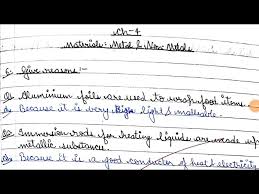 Ch-4
Materials: Metal & Non Metals
6. Give reasons:-
Q1 Aluminium foils are used to wrap food items.
Because it is very light & malleable.
Q2 Immersion rods for heating liquids are made up
metallic substances.
Because it is a good conductor of heat & electricity